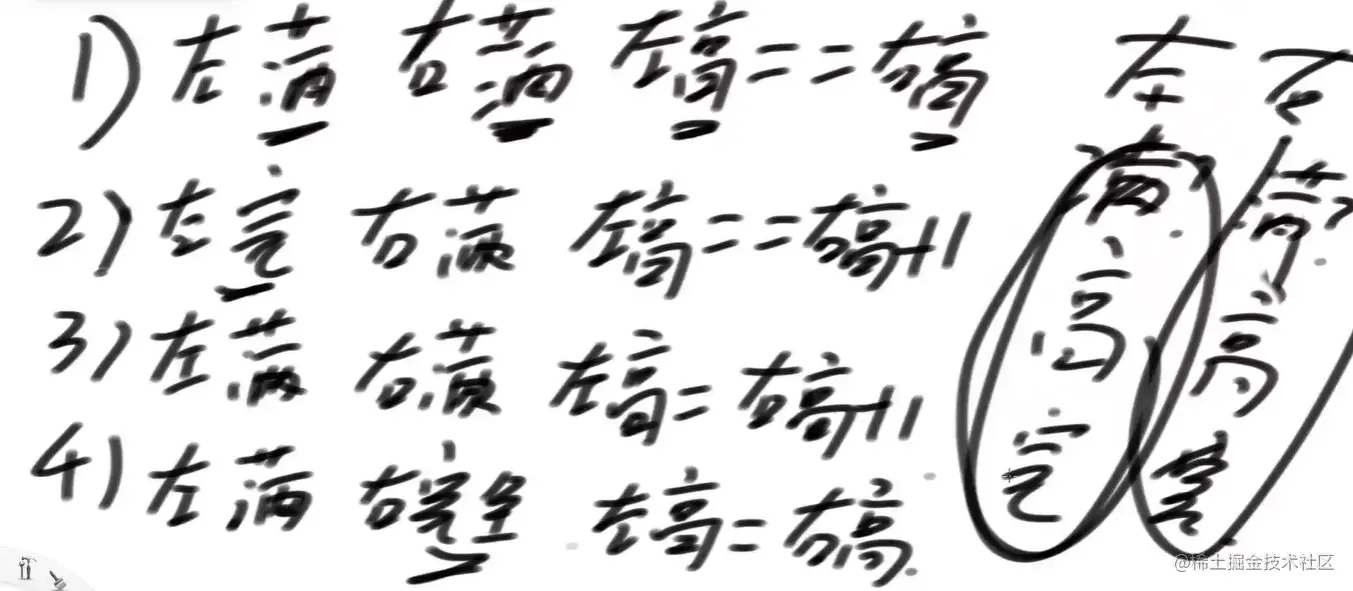 1) 左满 右满 左高==右高
2) 左完 右满 左高==右高+1
3) 左满 右满 左高=右高+1
4) 左满 右完全 左高=右高.
左 右
满 满
高 高
完 完
@稀土掘金技术社区